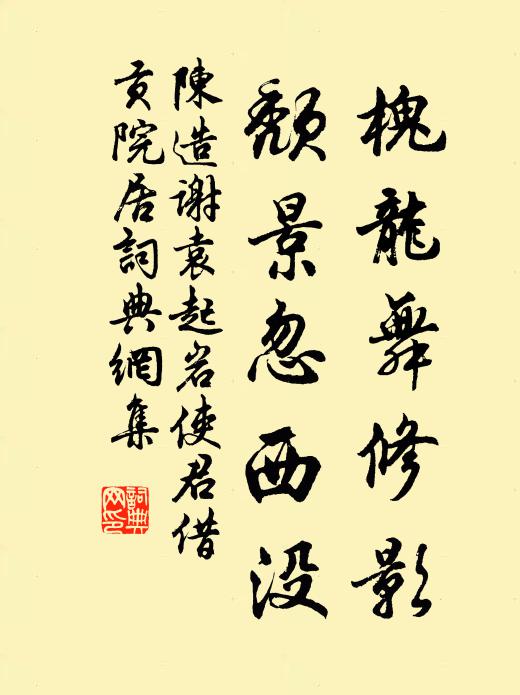 槐龍舞修影
頹景忽西没
陳造謝袁起岩使君借
貢院居詞典網集
詞典网印